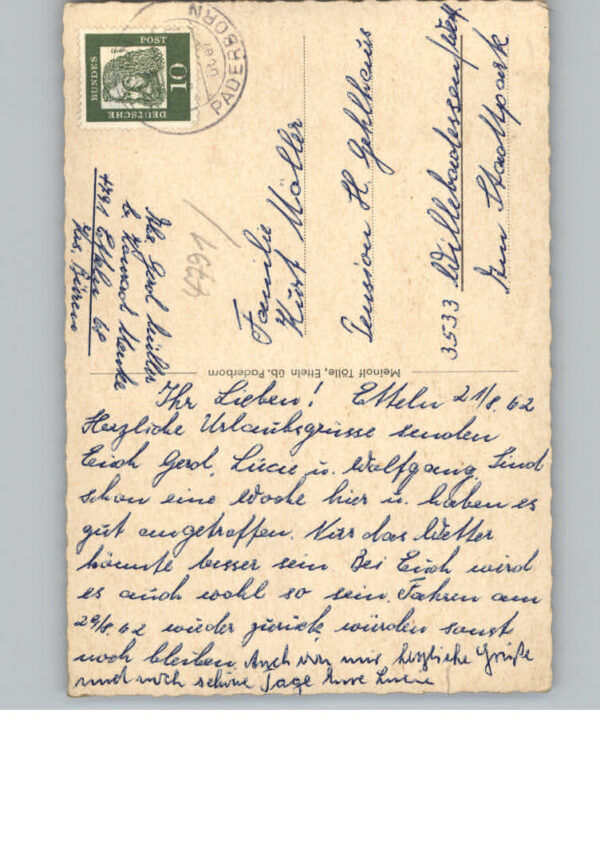 DEUTSCHE
BUNDES
POST
10
PADERBORN
Abs. Gerd Müller
b. Konrad Henke
4791 Etteln 68
Krs. Büren
4791
Familie
Kurt Möller
Pension H. Gehlhaus
3533 Willebadessen/Westf.
Am Stadtpark
Meinolf Tölle, Etteln üb. Paderborn
Ihr Lieben! Etteln 21/8.62
Herzliche Urlaubsgrüsse senden
Euch Gerd, Lucie u. Wolfgang. Sind
schon eine Woche hier u. haben es
gut angetroffen. Nur das Wetter
könnte besser sein. Bei Euch wird
es auch wohl so sein. Fahren am
29/8.62 wieder zurück würden sonst
noch bleiben. Auch von mir herzliche Grüße
und noch schöne Tage Eure Lucie